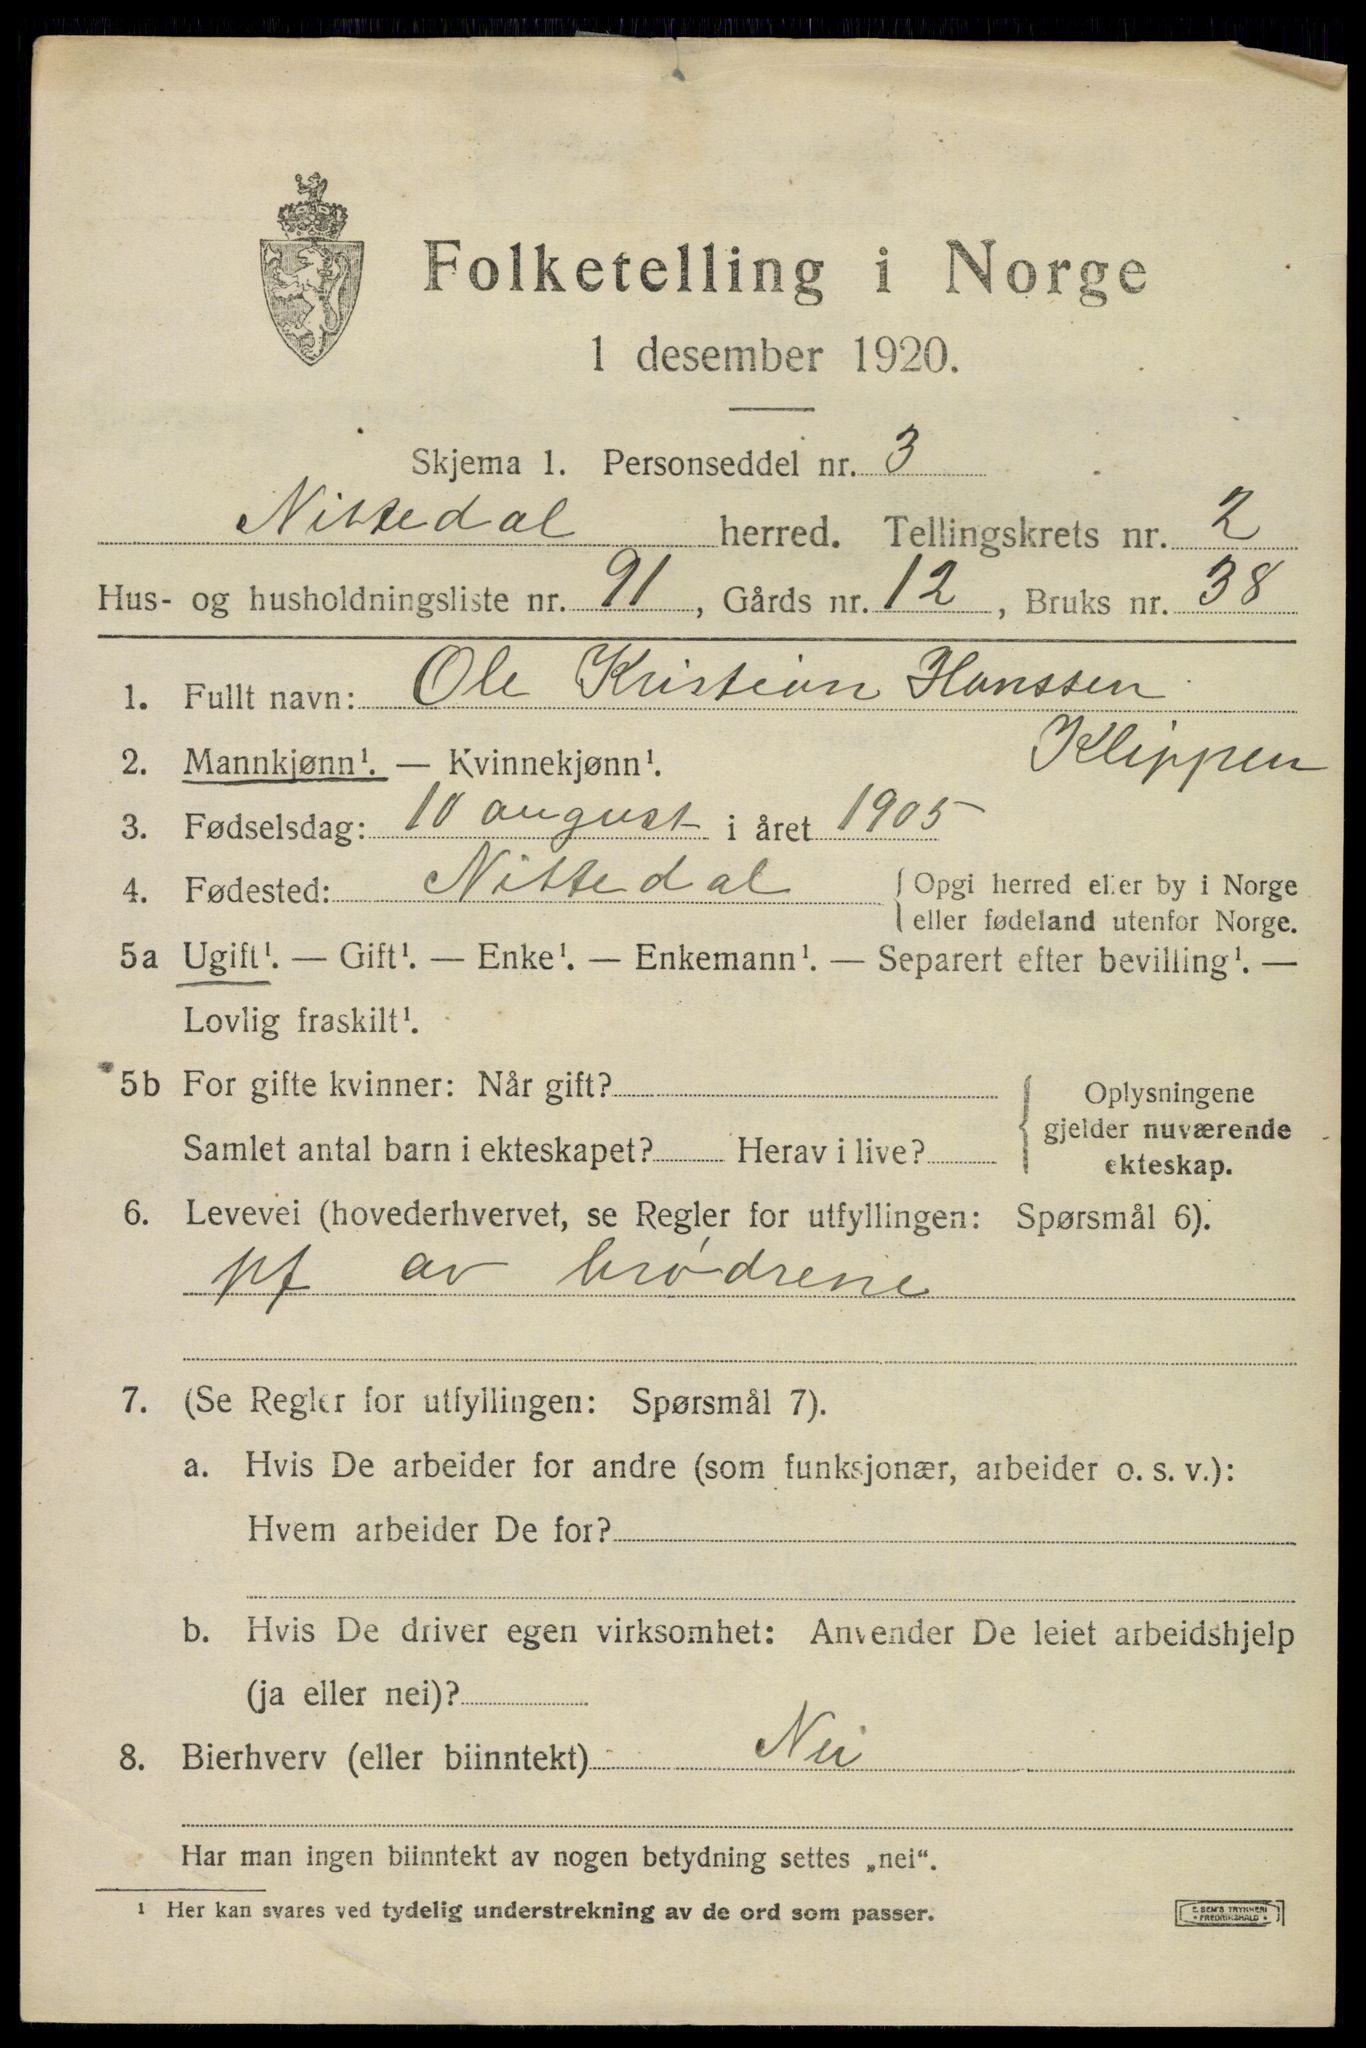 Folketelling i Norge
1 desember 1920.
Skjema 1. Personseddel nr. 3
Nittedal herred. Tellingskrets nr. 2
Hus- og husholdningsliste nr. 91, Gårds nr. 12, Bruks nr. 38
1. Fullt navn: Ole Kristian Hanssen
Klippen
2. Mannkjønn¹. — Kvinnekjønn¹.
3. Fødselsdag: 10 august i året 1905
4. Fødested: Nittedal {Opgi herred eller by i Norge
eller fødeland utenfor Norge.
5a Ugift¹. — Gift¹. — Enke¹. — Enkemann¹. — Separert efter bevilling¹. —
Lovlig fraskilt¹.
5b For gifte kvinner: Når gift?
Samlet antal barn i ekteskapet? Herav i live?
{Oplysningene
gjelder nuværende
ekteskap.
6. Levevei (hovederhvervet, se Regler for utfyllingen: Spørsmål 6).
pf av brødrene
7. (Se Regler for utfyllingen: Spørsmål 7).
a. Hvis De arbeider for andre (som funksjonær, arbeider o. s. v.):
Hvem arbeider De for?
b. Hvis De driver egen virksomhet: Anvender De leiet arbeidshjelp
(ja eller nei)?
8. Bierhverv (eller biinntekt) Nei
Har man ingen biinntekt av nogen betydning settes „nei“.
¹ Her kan svares ved tydelig understrekning av de ord som passer.
E. SEM'S TRYKKERI
* FREDRIKSHALD *